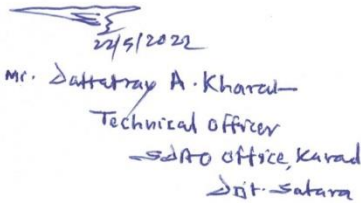 22/5/2022
Mr. Dattatray A. Kharat
Technical Officer
SDAO Office, Karad
Dist. Satara